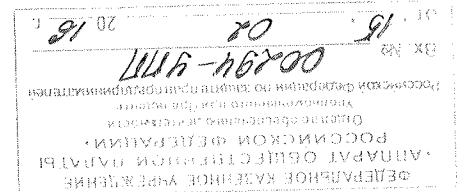 ФЕДЕРАЛЬНОЕ КАЗЕННОЕ УЧРЕЖДЕНИЕ
"АППАРАТ ОБЩЕСТВЕННОЙ ПАЛАТЫ
РОССИЙСКОЙ ФЕДЕРАЦИИ"
Отдел обеспечения деятельности
Уполномоченного при Президенте
Российской Федерации по защите прав предпринимателей
Вх № 00294-УПП
от "15" 02 2016 г.